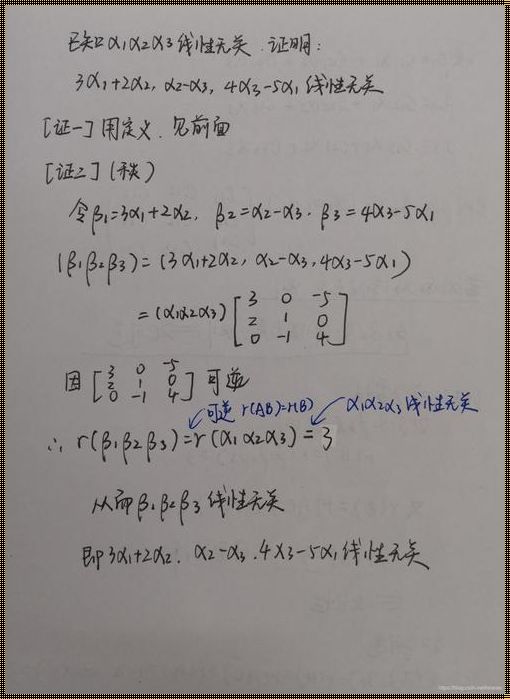 已知α1α2α3线性无关.证明:
3α1+2α2, α2-α3, 4α3-5α1 线性无关
[证一] 用定义.见前面
[证二] (秩)
令β1=3α1+2α2, β2=α2-α3. β3=4α3-5α1
(β1β2β3)=(3α1+2α2, α2-α3, 4α3-5α1)
=(α1α2α3)[3 0 -5
2 1 0
0 -1 4]
因[3 0 -5
2 1 0
0 -1 4]可逆
可逆 r(AB)=r(B) α1α2α3线性无关
∴ r(β1β2β3)=r(α1α2α3)=3
从而β1β2β3线性无关
即3α1+2α2. α2-α3.4α3-5α1线性无关